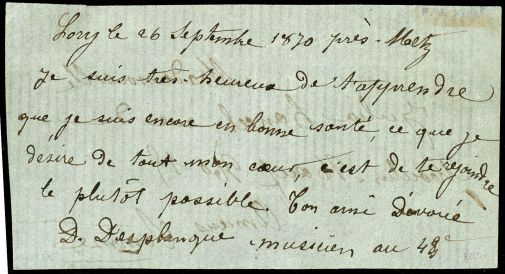 Lory le 26 Septembre 1870 près Metz
je suis très heureux de t'apprendre
que je suis encore en bonne santé, ce que je
désire de tout mon cœur c'est de te rejoindre
le plutôt possible. Ton ami dévoué
D. Desplanque musicien au 43e